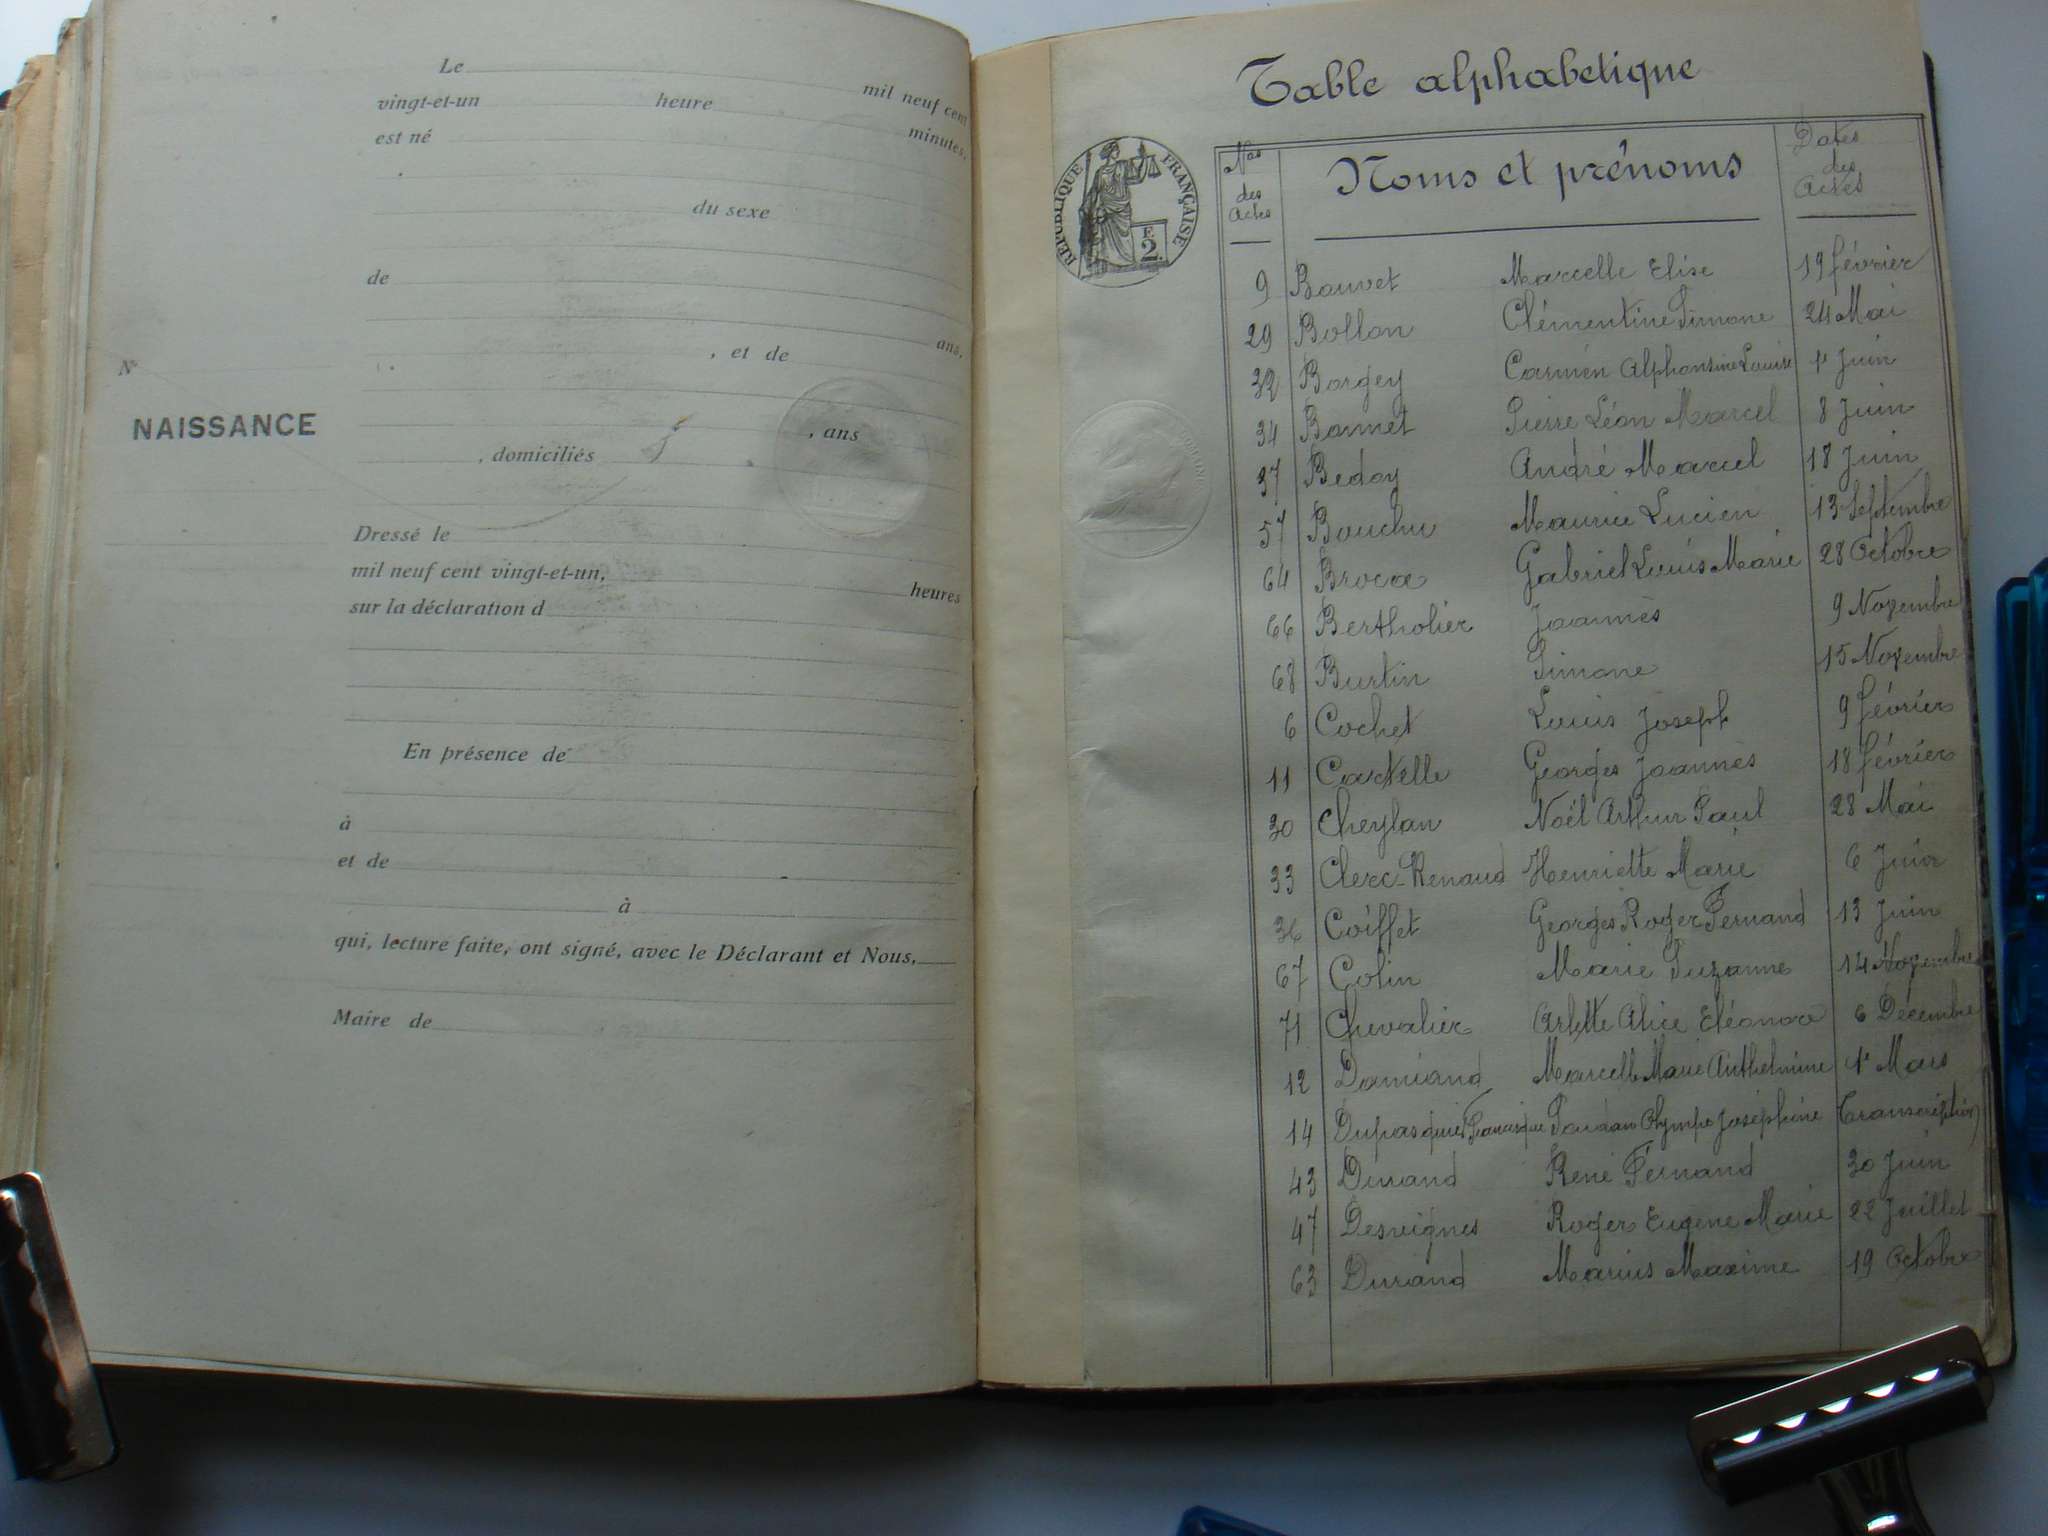 Le mil neuf cent
vingt-et-un heure minutes,
est né
du sexe
de
ans,
, et de
N°
NAISSANCE
, ans
, domiciliés
Dressé le
mil neuf cent vingt-et-un, heures
sur la déclaration d
En présence de
à
et de
à
qui, lecture faite, ont signé, avec le Déclarant et Nous,
Maire de
Table alphabetique
RÉPUBLIQUE FRANÇAISE
F.
2.
Nos des Actes Noms et prénoms Dates des Actes
9 Bouvet Marcelle Elise 19 février
29 Bollon Clémentine Simone 24 Mai
32 Borgey Carmen Alphonsine Louise 1r Juin
34 Bonnet Pierre Léon Marcel 8 Juin
37 Bedoy André Marcel 18 Juin
57 Bouchu Maurice Lucien 13 Septembre
64 Broca Gabriel Louis Marie 28 Octobre
66 Bertholier Joannès 9 Novembre
68 Burtin Simone 15 Novembre
6 Cochet Louis Joseph 9 février
11 Castelle Georges Joannès 18 février
30 Cheylan Noël Arthur Paul 28 Mai
33 Clerc-Renaud Henriette Marie 6 Juin
36 Coiffet Georges Roger Fernand 13 Juin
67 Colin Marie Suzanne 14 Novembre
71 Chevalier Arlette Alice Eléonore 6 Décembre
12 Damiand Marcelle Marie Anthelmine 1r Mars
14 Dupasquier Francisque Olympe Joséphine (transcription)
43 Durand René Fernand 30 Juin
47 Desvignes Roger Eugene Marie 22 Juillet
63 Durand Marius Maxime 19 Octobre